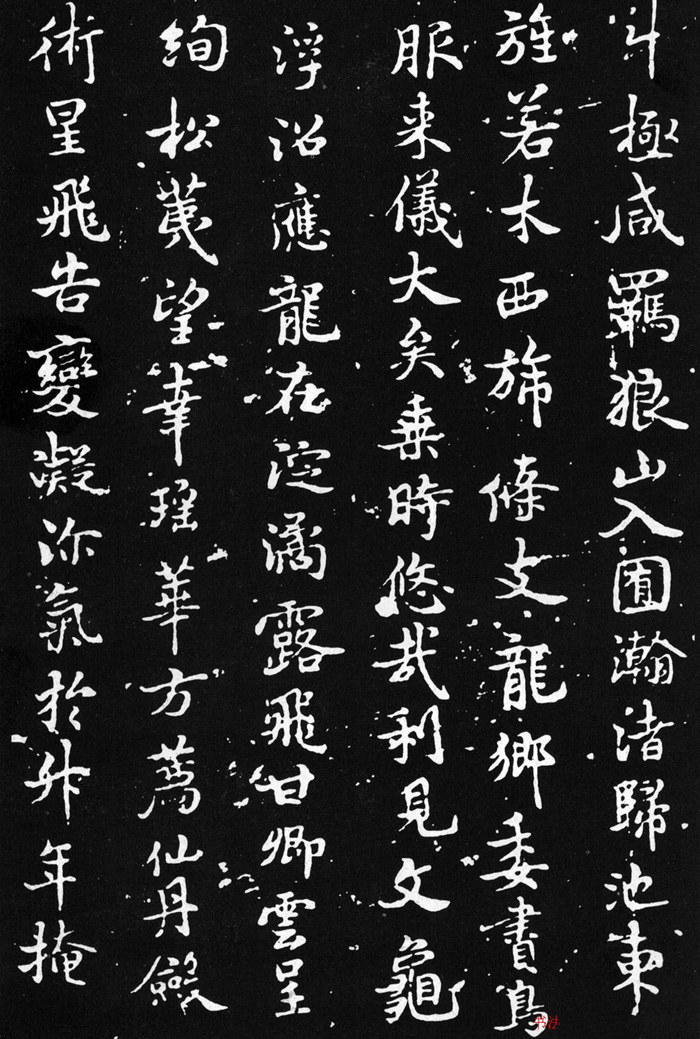 斗極咸羈狼山入囿瀚渚歸池東
旌若木西旆條支龍鄉委書鳥
服来儀大矣乗時悠哉利見文龜
浮沼應龍在淀潏露飛甘卿雲呈
絢松荑望幸瑶華方薦仙丹儉
術星飛告變凝沴氣於升年掩
书法